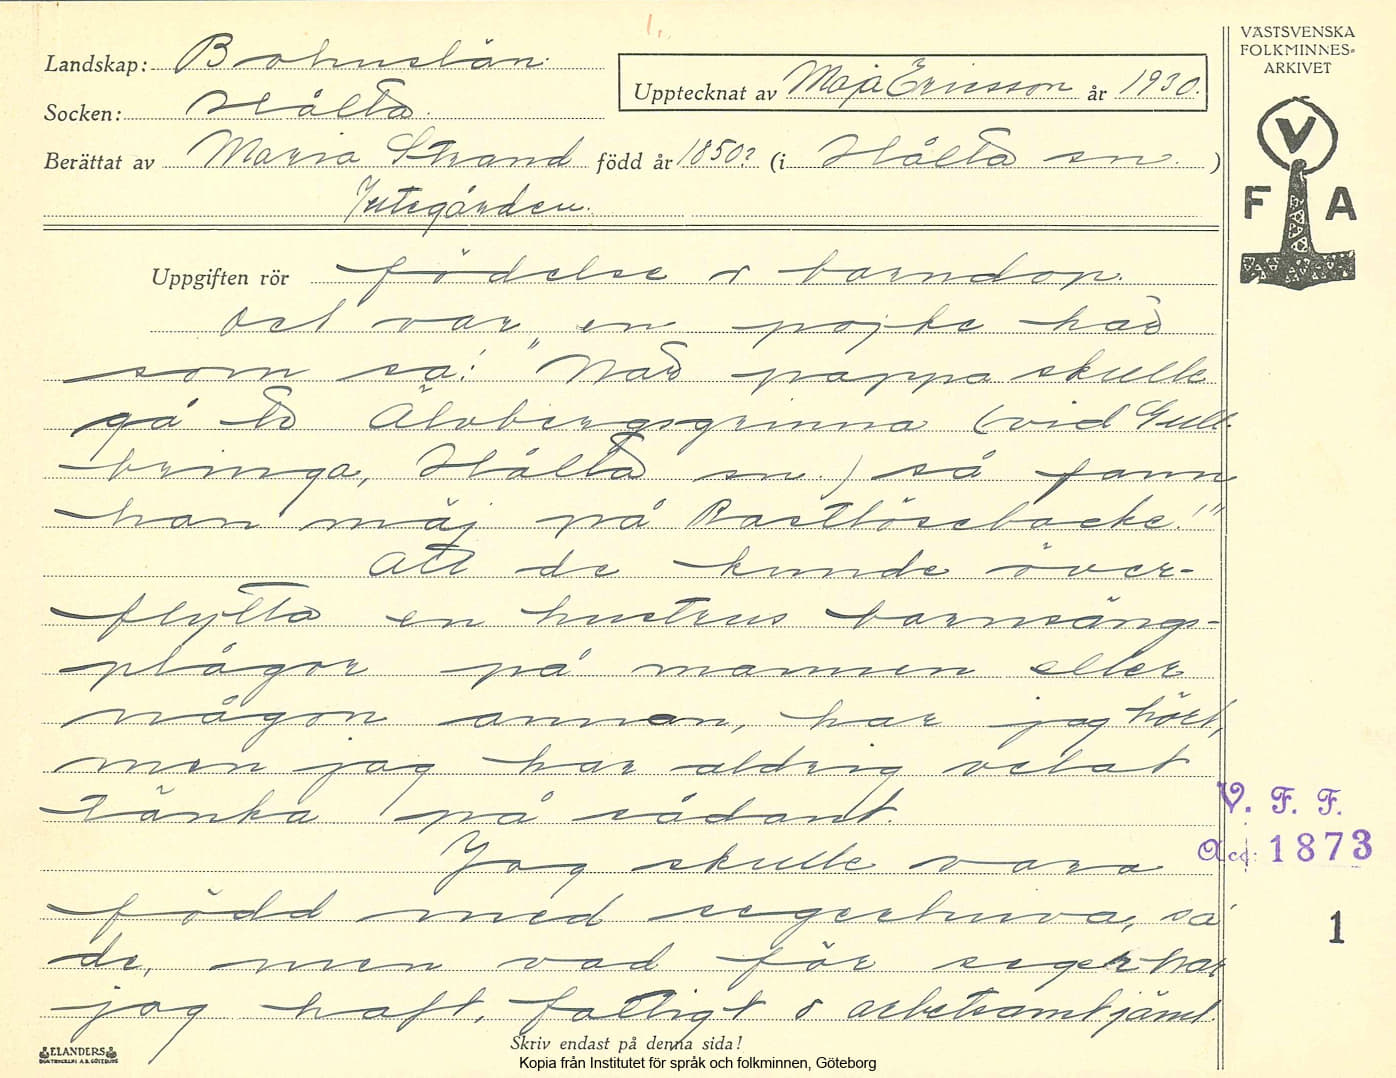 1.
VÄSTSVENSKA
FOLKMINNES-
ARKIVET
V
F A
Landskap: Bohuslän
Upptecknat av Maja Ericsson år 1930.
Socken: Hålta.
Berättat av Maria Strand född år 1850? (i Hålta sn. )
Integården.
Uppgiften rör födelse o barndop.
Det var en pojke här
som sa: "När pappa skulle
gå te Älvbergsgrinna (vid Gull-
bringa, Hålta sn.) så fann
han mäj på Rastlösebacke!"
Att de kunde över-
flytta en hustrus barnsängs-
plågor på mannen eller
någon annan, har jag hört,
men jag har aldrig velat
tänka på sådant.
Jag skulle vara
född med segerhuva, sa
de, men vad för seger har
jag haft, fattigt o arbetsamt jämt.
V. F. F.
Acc: 1873
1
Skriv endast på denna sida!
ELANDERS
BOKTRYCKERI A.B. GÖTEBORG
Kopia från Institutet för språk och folkminnen, Göteborg